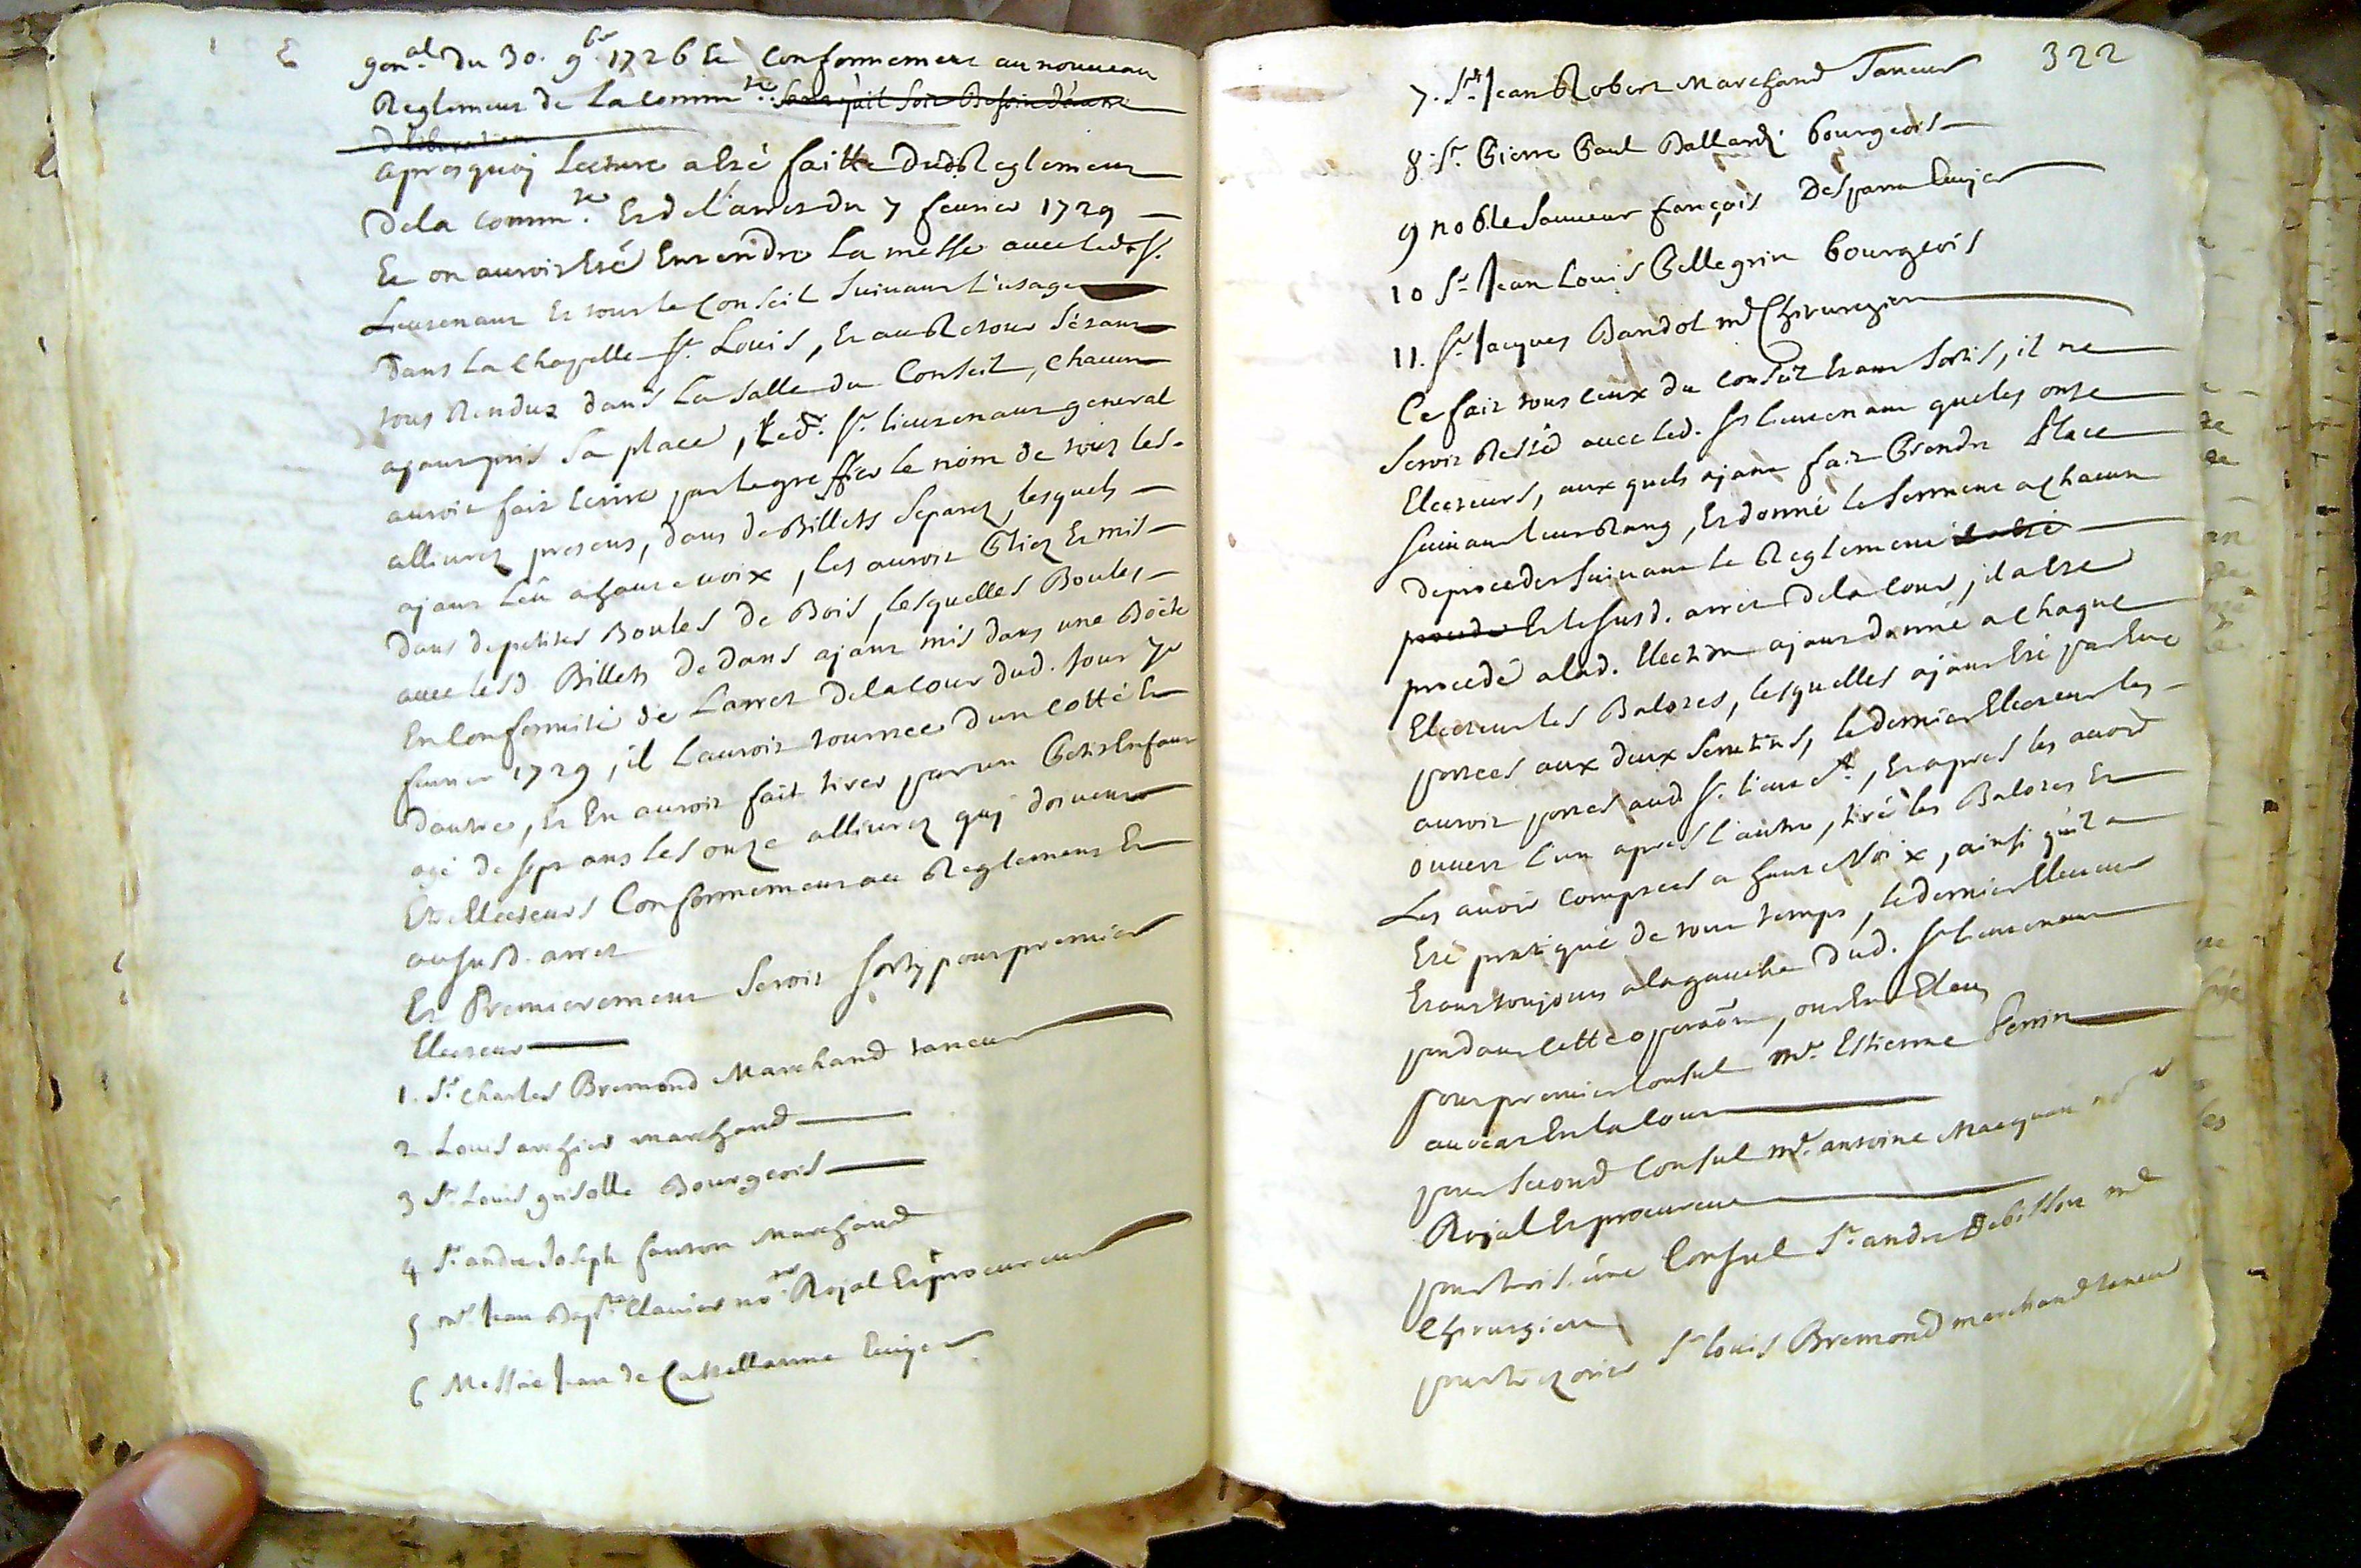 gen.al Du 30. 9bre 1726 Et Conformement au nouveau
Reglement de La comm.te Sans quil Soit Besoin d'autre
deliberation
apres quoy Lecture a Esté faitte Dud. Reglement
De la comm.te Et de l'arrest du 7 fevrier 1729
Et on auroit Esté Entendre La messe avec led. Sr.
Lieutenant Et tout le Conseil Suivant L'usage
Dans La Chapelle St. Louis, Et au Retour S'étant
tous Rendus dans La Salle du Conseil, chacun
ayant pris Sa place, Led. Sr. lieutenant general
auroit fait Ecrire par le greffier le nom de tous les
allivrez presens, dans de Billets Separez, lesquels
ayant Leu a haute voix, les auroit Pliez Et mis
Dans de petites Boules de Bois, lesquelles Boules
avec lesd. Billets Dedans ayant mis dans une Boëte
En Conformité de L'arret De la Cour dud. Jour 7e
fevrier 1729, il L'auroit tournee d'un Costté Et
d'autre, Et En auroit fait tirer par un Petit Enfant
agé de Sept ans les onze allivrez quy doivent
Etre Electeurs Conformement au Reglement Et
au Susd. arret
Et Premierement Seroit Sorty pour premier
Electeur
1. Sr. Charles Bremond Marchand taneur
2 Louis archier marchand
3 Sr. Louis grisolle Bourgeois
4 Sr. andre Joseph fanton Marchand
5 me Jean Bapt.e Clavier no.re Royal Et procureur
6 Messire Jean de Castellanne Ecuyer
322
7. Sr. Jean Robert Marchand Taneur
8. Sr. Pierre Paul Ballardy bourgeois
9 noble Sauveur françois Desparra Ecuyer
10 Sr. Jean Louis Pellegrin bourgeois
11. Sr. Jacques Bandol me Chirurgien
Ce fait tous ceux du Conseil Etant Sortis, il ne
Seroit Resté avec led. Sr Lieutenant que les onze
Electeurs, aux quels ayant fait Prendre Place
Suivant leur Rang, Et donné le Serment a chacun
De proceder Suivant le Reglement il a été
procedé Et le Susd. arret De la Cour, il a Eté
procedé a lad. Election ayant donné a chaque
Electeur les Balotes, lesquelles ayant Eté par Eux
portees aux deux Scrutins, le dernier Electeur les
auroit portes aud. Sr. lieut.t, Et apres les avoir
ouvert l'un apres L'autre, tiré les Balotes Et
Les avoir comptees a haute Voix, ainsi quil a
Eté pratiqué de tout temps, le dernier Electeur
Etant toujours a la gauche Dud. Sr lieutenant
pendant cette operaõn, ont Eté Eleus
pour premier Consul me. Estienne Perrin
avocat En la Cour
pour Second Consul me. antoine Macquan no.re
Royal Et procureur
pour trois.ieme Consul Sr. andre me
Chirurgien
pour trezorier Sr Louis Bremond marchand taneur